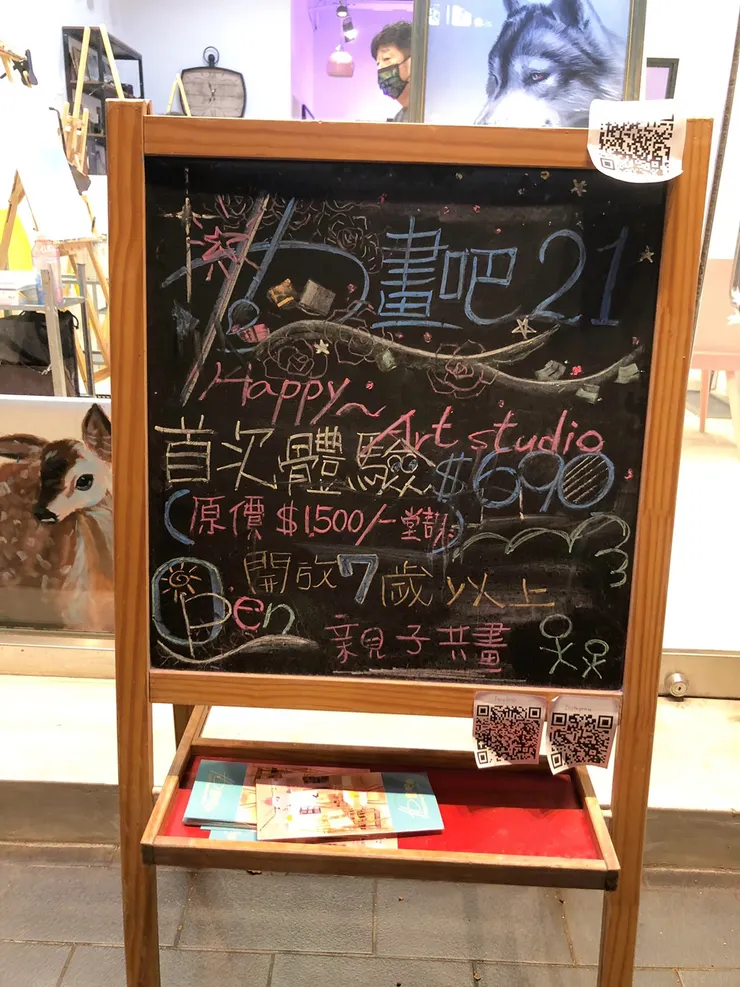 畫吧21
Happy~ Art studio
首次體驗$690
(原價$1,500/一堂課)
Open
開放7歲以上
親子共畫